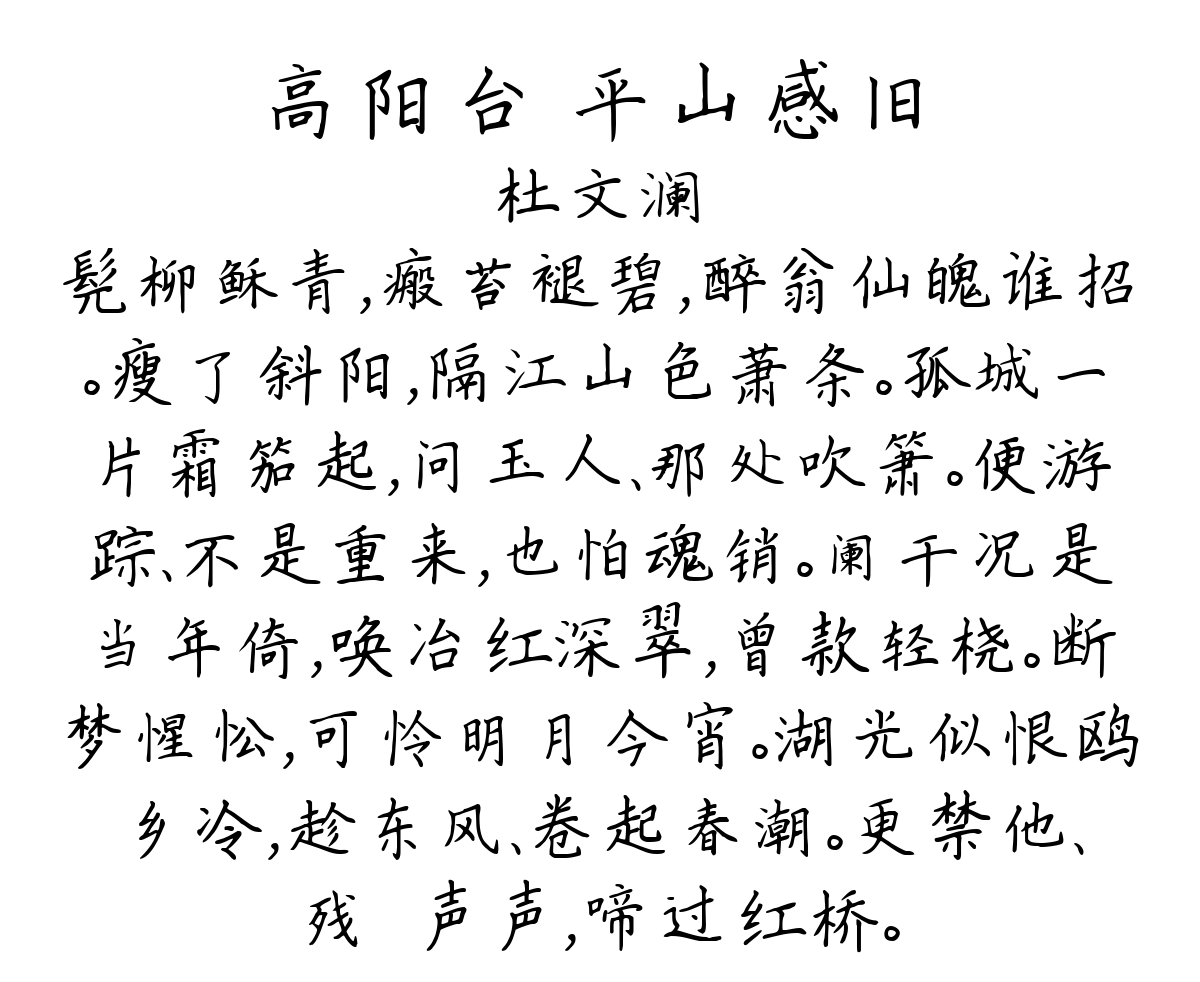 高阳台 平山感旧
杜文澜
髡柳稣青,瘢苔褪碧,醉翁仙魄谁招
。瘦了斜阳,隔江山色萧条。孤城一
片霜笳起,问玉人、那处吹箫。便游
踪、不是重来,也怕魂销。阑干况是
当年倚,唤冶红深翠,曾款轻桡。断
梦惺忪,可怜明月今宵。湖光似恨鸥
乡冷,趁东风、卷起春潮。更禁他、
残 声声,啼过红桥。